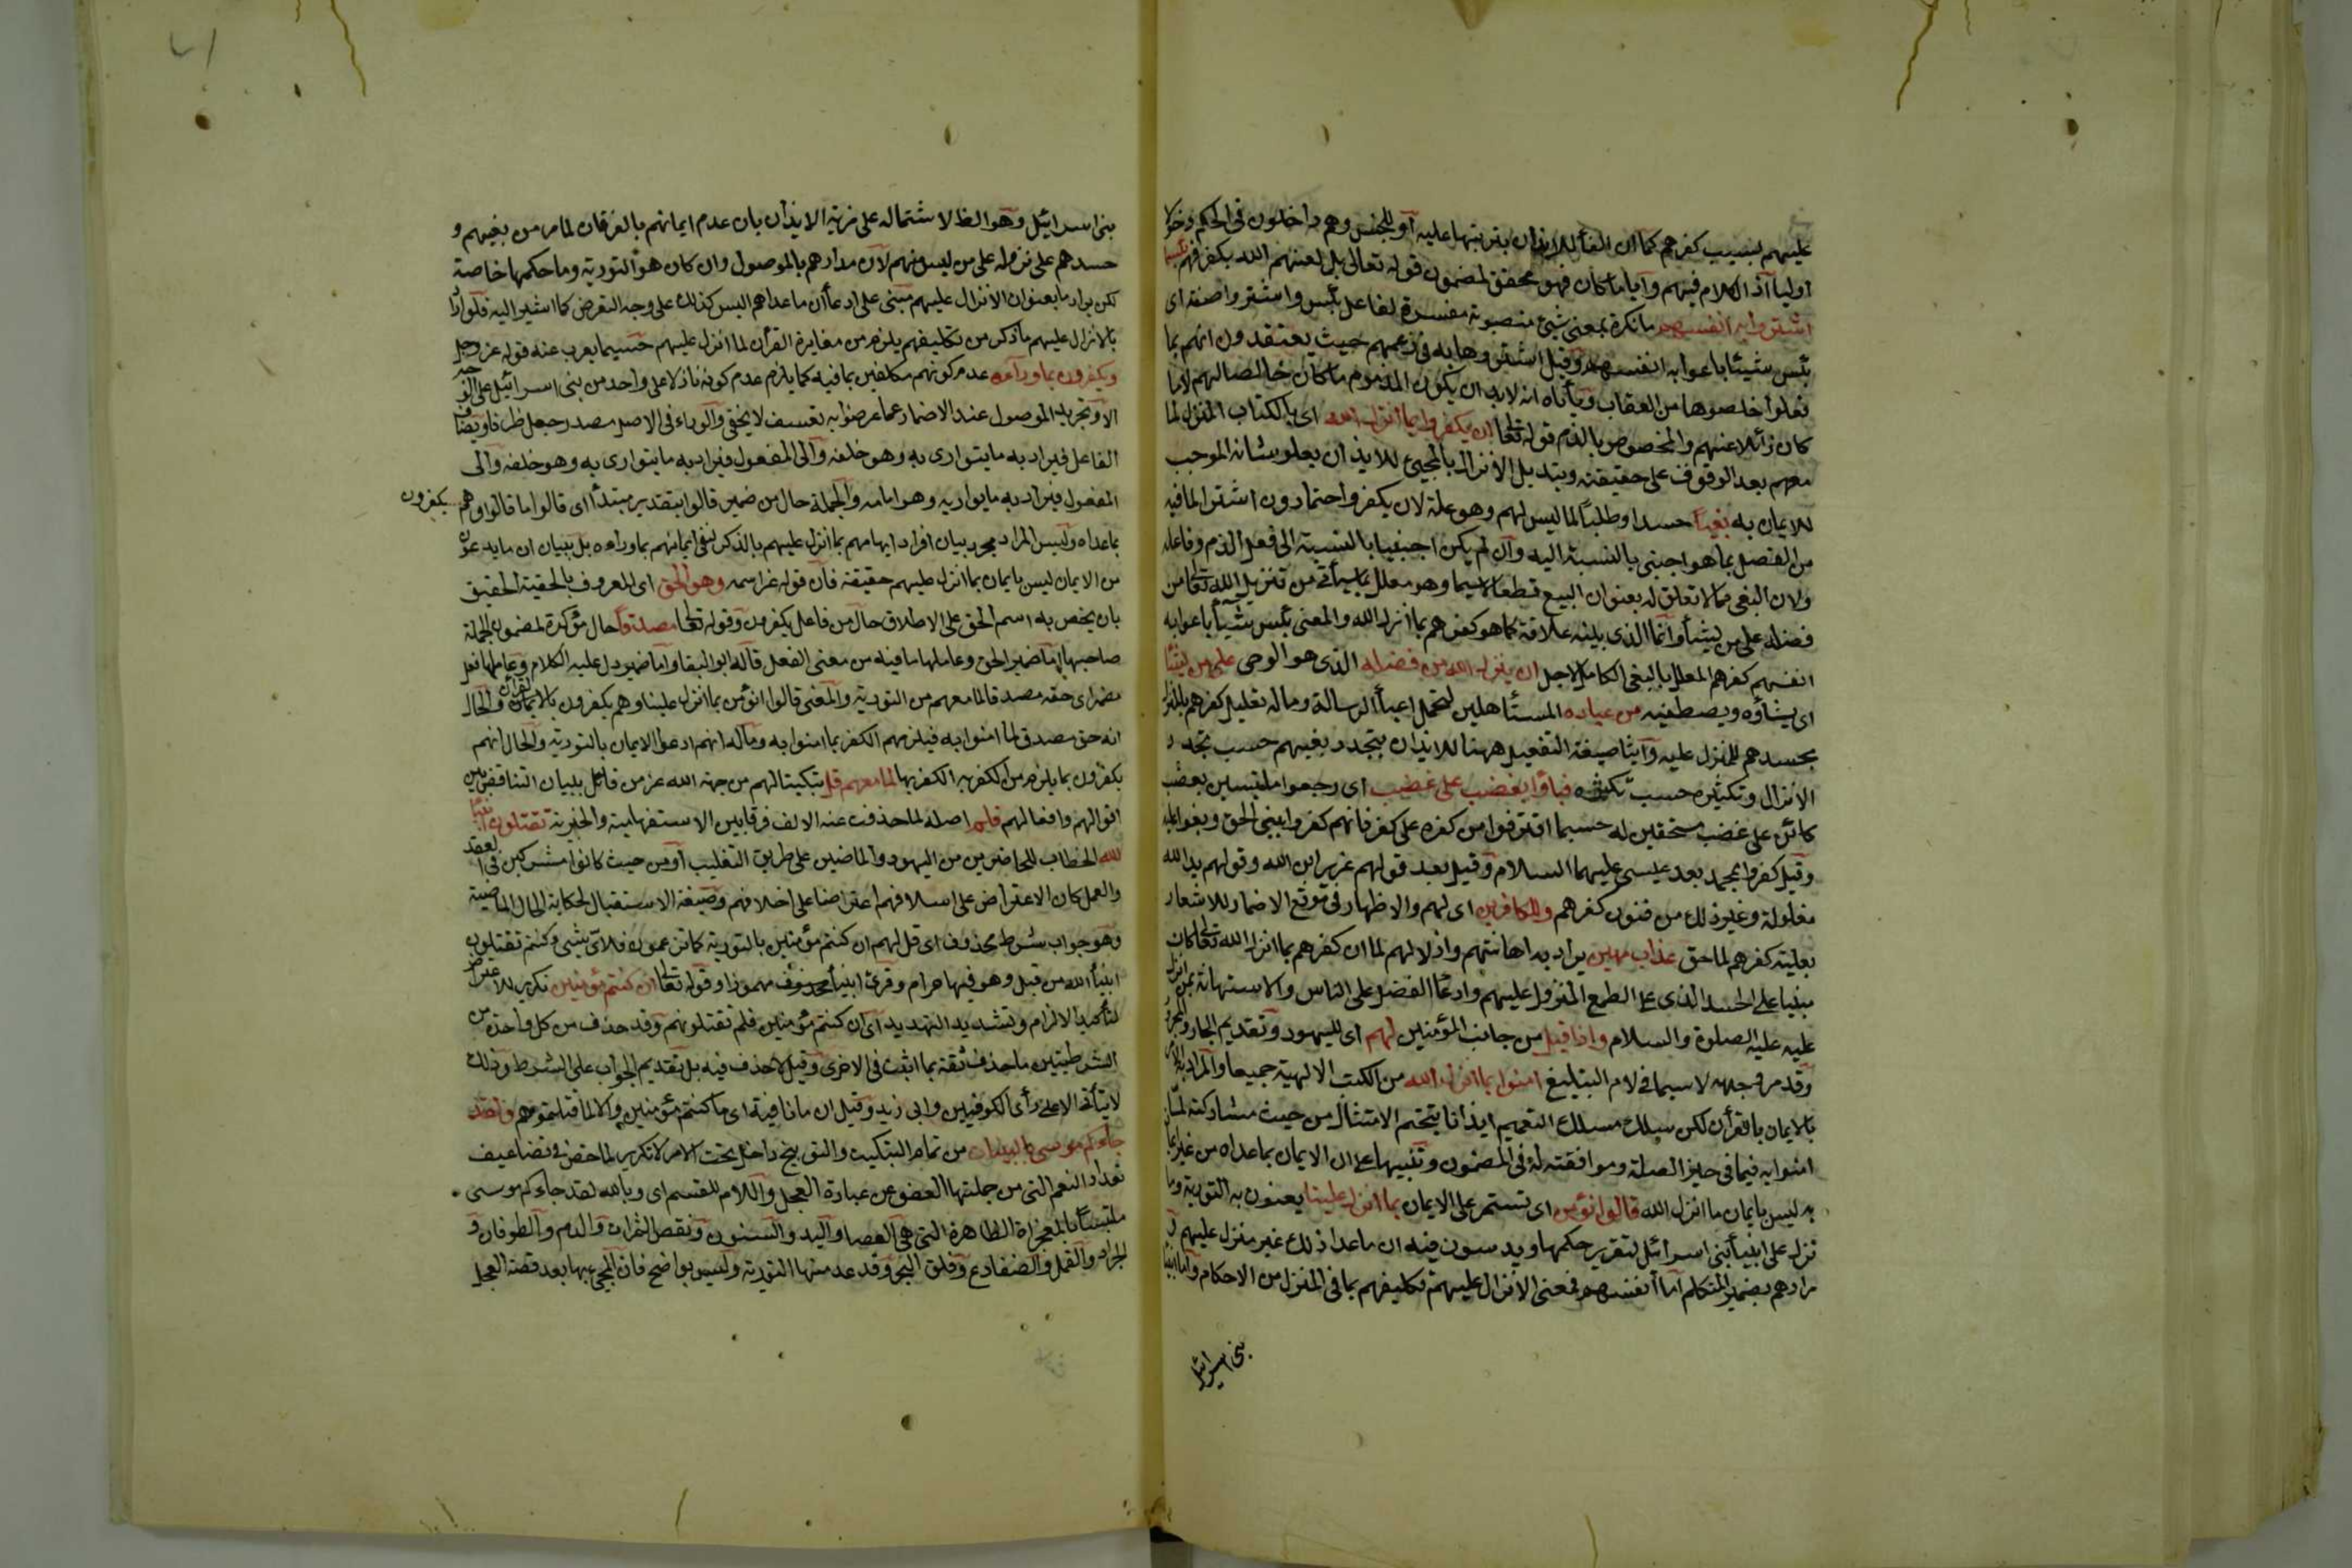 عليهم لسبب كفرهم كما ان الفأ للايذان بترتبها عليه أو للجنس وهم داخلون في الحكم دخولا
اوليا اذ الكلام فيهم وأيا ما كان فهو محقق لمضمون قوله تعالى بل لعنهم الله بكفرهم بئسما
اشتروا به انفسهم ما نكرة بمعنى شئ منصوبة مفسرة لفاعل بئس واشتروا صفته اى
بئس شيئا باعوا به انفسهم وقيل اشتروها به في زعمهم حيث يعتقدون انهم بما
فعلوا خلصوها من العقاب ويأباه انه لابد ان يكون المذموم ما كان حاصلا لهم لا ما
كان زائلا عنهم والمخصوص بالذم قوله تعا ان يكفروا بما انزل الله اى بالكتاب المنزل لما
معهم بعد الوقوف على حقيقته وتبديل الانزال بالمجئ للايذان بعلو شانه الموجب
للايمان به بغيا حسدا وطلبا لما ليس لهم وهو علة لان يكفروا حتما دون اشتروا لما فيه
من الفصل بما هو اجنبى بالنسبة اليه وان لم يكن اجنبيا بالنسبة الى فعل الذم وفاعله
ولان البغى مما لا تعلق له بعنوان البيع قطعا لا سيما وهو معلل بما سيأتى من تنزيل الله تعا من
فضله على من يشأ وانما الذى بينه علاقة كما هو كفرهم بما انزل الله والمعنى بئس شيأ باعوا به
انفسهم كفرهم المعلل بالبغى الكامل لاجل ان ينزل الله من فضله الذى هو الوحى على من يشأ
اى يشأوه ويصطفيه من عباده المستأهلين لتحمل اعبأ الرسالة وماله تعليل كفرهم بالمنزل
بحسدهم للمنزل عليه وايثار صيغة التفعيل ههنا للايذان بتجدد بغيهم حسب تجدد
الانزال وتكثره حسب تكثره فباؤا بغضب على غضب اى رجعوا ملتبسين بغضب
كائن على غضب مستحقين له حسبما اقترفوا من كفره على كفر فانهم كفروا بنبى الحق وبغوا عليه
وقيل كفروا بمحمد بعد عيسى عليهما السلام وقيل بعد قولهم عزير ابن الله وقولهم يد الله
مغلولة وغير ذلك من فنون كفرهم وللكافرين اى لهم والاظهار فى موقع الاضمار للاشعار
بعلية كفرهم لما حق عذاب مهين يراد به اهانتهم واذلالهم لما ان كفرهم بما انزل الله تعا كان
مبنيا على الحسد الذى على الطمع المنزول عليهم وادعا الفضل على الناس والاستهانة بمن انزل
عليه عليه الصلوة والسلام واذا قيل من جانب المؤمنين لهم اى لليهود وتقديم الجار والمجرور
وقد مر وجهه لا سيما فى لام التبليغ امنوا بما انزل الله من الكتب الالهية جميعا والمراد به الامر
بالايمان بالقرأن لكن سلك مسلك التعميم ايذانا بتحتم الامتثال من حيث مشاركته لما
امنوا به فيما فى حيز الصلة وموافقته له فى المضمون وتنبيها على ان الايمان بما عداه من غير ايما
به ليس بايمان ما انزل الله قالوا نؤمن اى نستمر على الايمان بما انزل علينا يعنون به التورية وما
نزل على انبيأ بنى اسرائل لتقرير حكمها ويدسون فيه ان ما عدا ذلك غير منزل عليهم و
مرادهم بضمير المتكلم اما انفسهم فمعنى الانزال عليهم تكليفهم بما فى المنزل من الاحكام واما انبيأ
بنى اسرائل
بنى اسرائيل وهو الظ لاشتماله على مزية الايذان بان عدم ايمانهم بالفرقان لما مر من بغيهم و
حسدهم على نزوله على من ليس منهم لان مدارهم بالموصول وان كان هو التورية وما حكمها خاصة
لكن يراد ما بعنوان الانزال عليهم مبنى على ادعأ ان ما عداه اليس كذلك على وجه التعرض كما اشير اليه فلو ارا
بالانزال عليهم ما ذكر من تكليفهم يلزم من مغايرة القرأن لما انزل عليهم حسبما يعرب عنه قوله عز وجل
ويكفرون بما ورآءه عدم كونهم مكلفين بما فيه كما يلزم عدم كونه نازلا على واحد من بنى اسرائيل على الوجه
الا وتجريد الموصول عند الاضمار عما عرضوا به تعسف لا يخفى والوراء فى الاصل مصدر جعل ظرفا ويضا
الفاعل فيراد به ما يتوارى به وهو خلفه والى المفعول فيراد به ما يتوارى به وهو خلفه والى
المفعول فيراد به ما يواريه وهو امامه والجملة حال من ضمير قالوا بتقدير مبتدأ اى قالوا ما قالوا وهم يكفرون
بما عداه وليس المراد مجرد بيان افراد ايهامهم بما انزل عليهم بالذكر لنفى ايمانهم بما وراءه بل ببيان ان ما يدعون
من الايمان ليس بايمان بما انزل عليهم حقيقة فان قوله عز اسمه وهو الحق اى المعروف بالحقية الحقيق
بان يخص به اسم الحق على الاطلاق حال من فاعل يكفرون وقوله تعا مصدقا حال مؤكدة لمضمون الجملة
صاحبها اما ضمير الحق وعاملها ما فيه من معنى الفعل قاله ابو البقا واما ضمير دل عليه الكلام وعاملها فعل
مضمر اى حقه مصدقا لما معهم من التورية والمعنى قالوا نؤمن بما انزل علينا وهم يكفرون بالايمان بالقرأن والحال
انه حق مصدق لما امنوا به فيلزمهم الكفر بما امنوا به ومآله انهم ادعوا الايمان بالتورية والحال انهم
يكفرون بما يلزم من الكفر به الكفر بها لما معهم قل تبكيتا لهم من جهة الله عز من قائل ببيان التناقض بين
اقوالهم وافعالهم فلم اصله لما حذفت عنه الالف فرقا بين الاستفهامية والخبرية تقتلون انبيأ
الله الخطاب للحاضرين من اليهود والماضين على طريق التغليب او من حيث كانوا مشتركين فى العقد
والعمل كان الاعتراض على اسلافهم اعتراضا على اخلافهم وصيغة الاستقبال لحكاية الحال الماضية
وهو جواب شرط محذوف اى قل لهم ان كنتم مؤمنين بالتورية كما تزعمون فلاى شئ كنتم تقتلون
انبيأ الله من قبل وهو فيها حرام وقرئ انبيأ محذوف مهموزا وقوله تعا ان كنتم مؤمنين تكرير للاعتراض
لتأكيد الالزام وتشديد التهديد اى ان كنتم مؤمنين فلم تقتلونهم وقد حذف من كل واحدة من
الشرطيتين ما حذف ثقة بما اثبت فى الاخرى وقيل لا حذف فيه بل تقديم الجواب على الشرط وذلك
لا يتأتى الا على رأى الكوفيين وابى زيد وقيل ان ما نافية اى ما كنتم مؤمنين والا لما قتلتموهم ولقد
جاءكم موسى بالبينات من تمام التبكيت والتوبيخ داخل تحت الامر لا تكرير لما حقق فى تضاعيف
تعداد النعم التى من جملتها العفو عن عبادة العجل واللام للقسم اى وبالله لقد جاءكم موسى
ملتبسا بالمعجزاة الظاهرة التى هى العصا واليد والسنون ونقص الثمرات والدم والطوفان و
الجراد والقمل والضفادع وفلق البحر وقد عد منها التورية وليس بواضح فان المجئ بها بعد قصة العجل